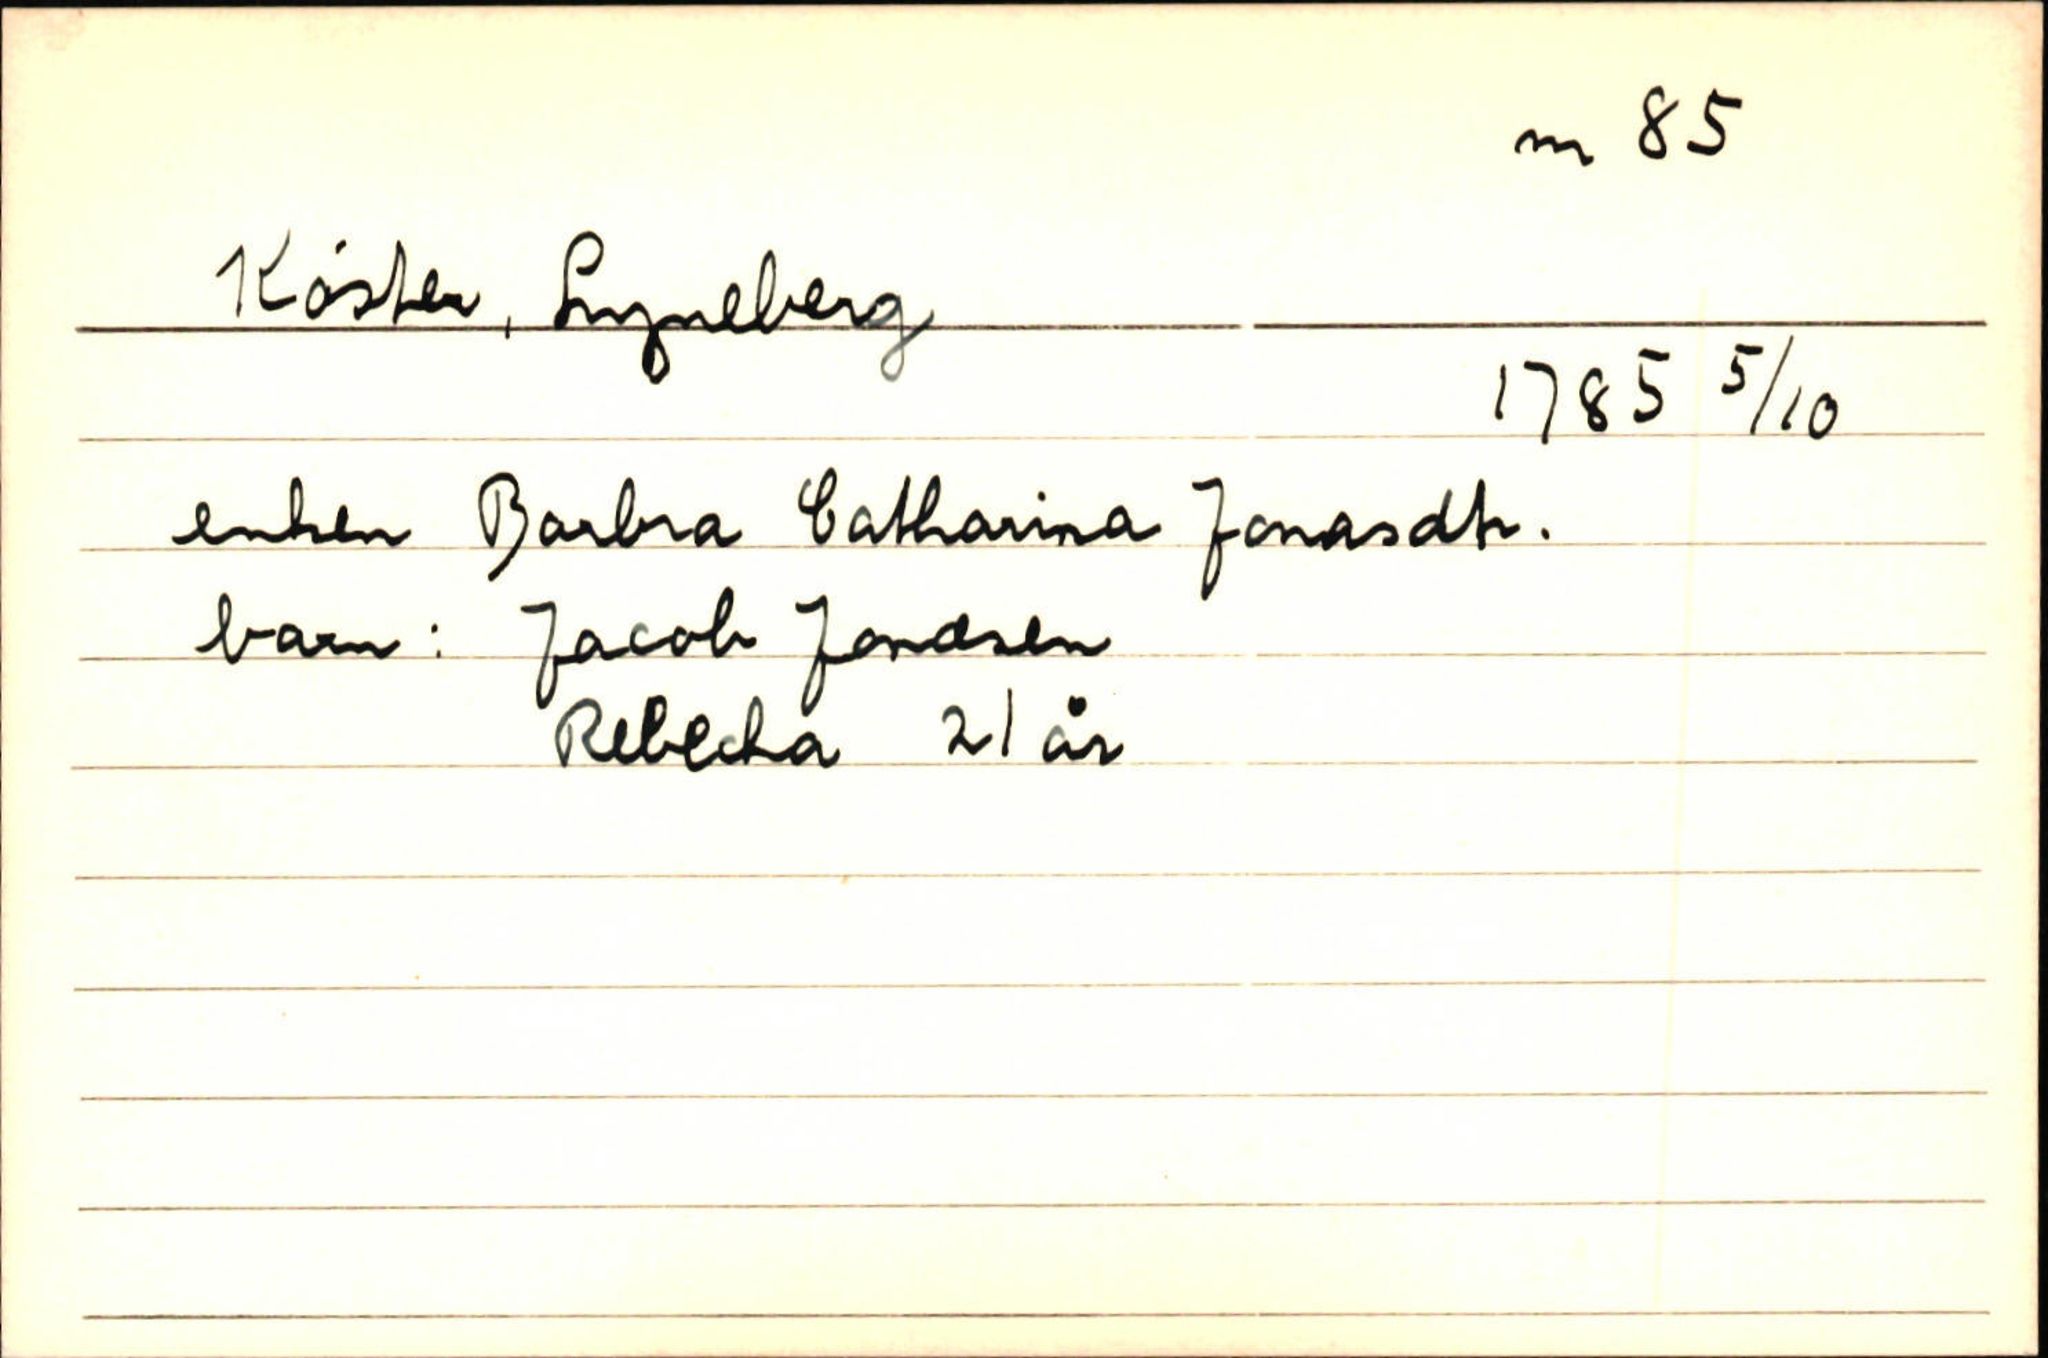 m 85
Köster, Lyneberg
1785 5/10
enken Barbra Catharina Jonasdtr.
barn: Jacob Jonasen
Rebecka 21 år